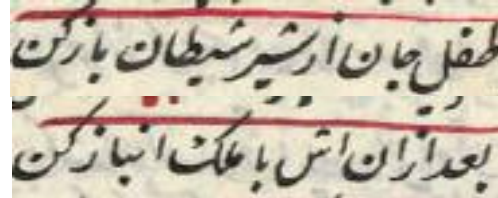 طفل جان از شیر شیطان باز کن
بعد از ان اش با ملک انباز کن